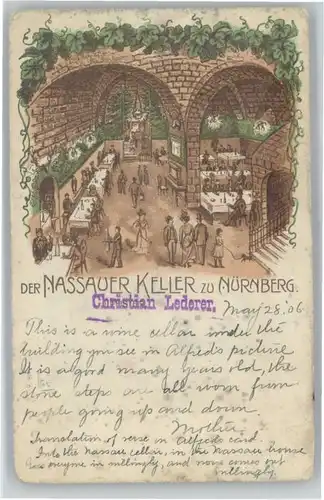 DER NASSAUER KELLER ZU NÜRNBERG.
Christian Lederer.
May 28, '06
This is a wine cellar under the
building you see in Alfred's picture
It is a good many years old, the
stone steps are all worn from
people going up and down
Mother.
Translation of verse in Alfreds card.
Into the Nassau cellar, in the Nassau house
Goes anyone in willingly, and none comes out
willingly.